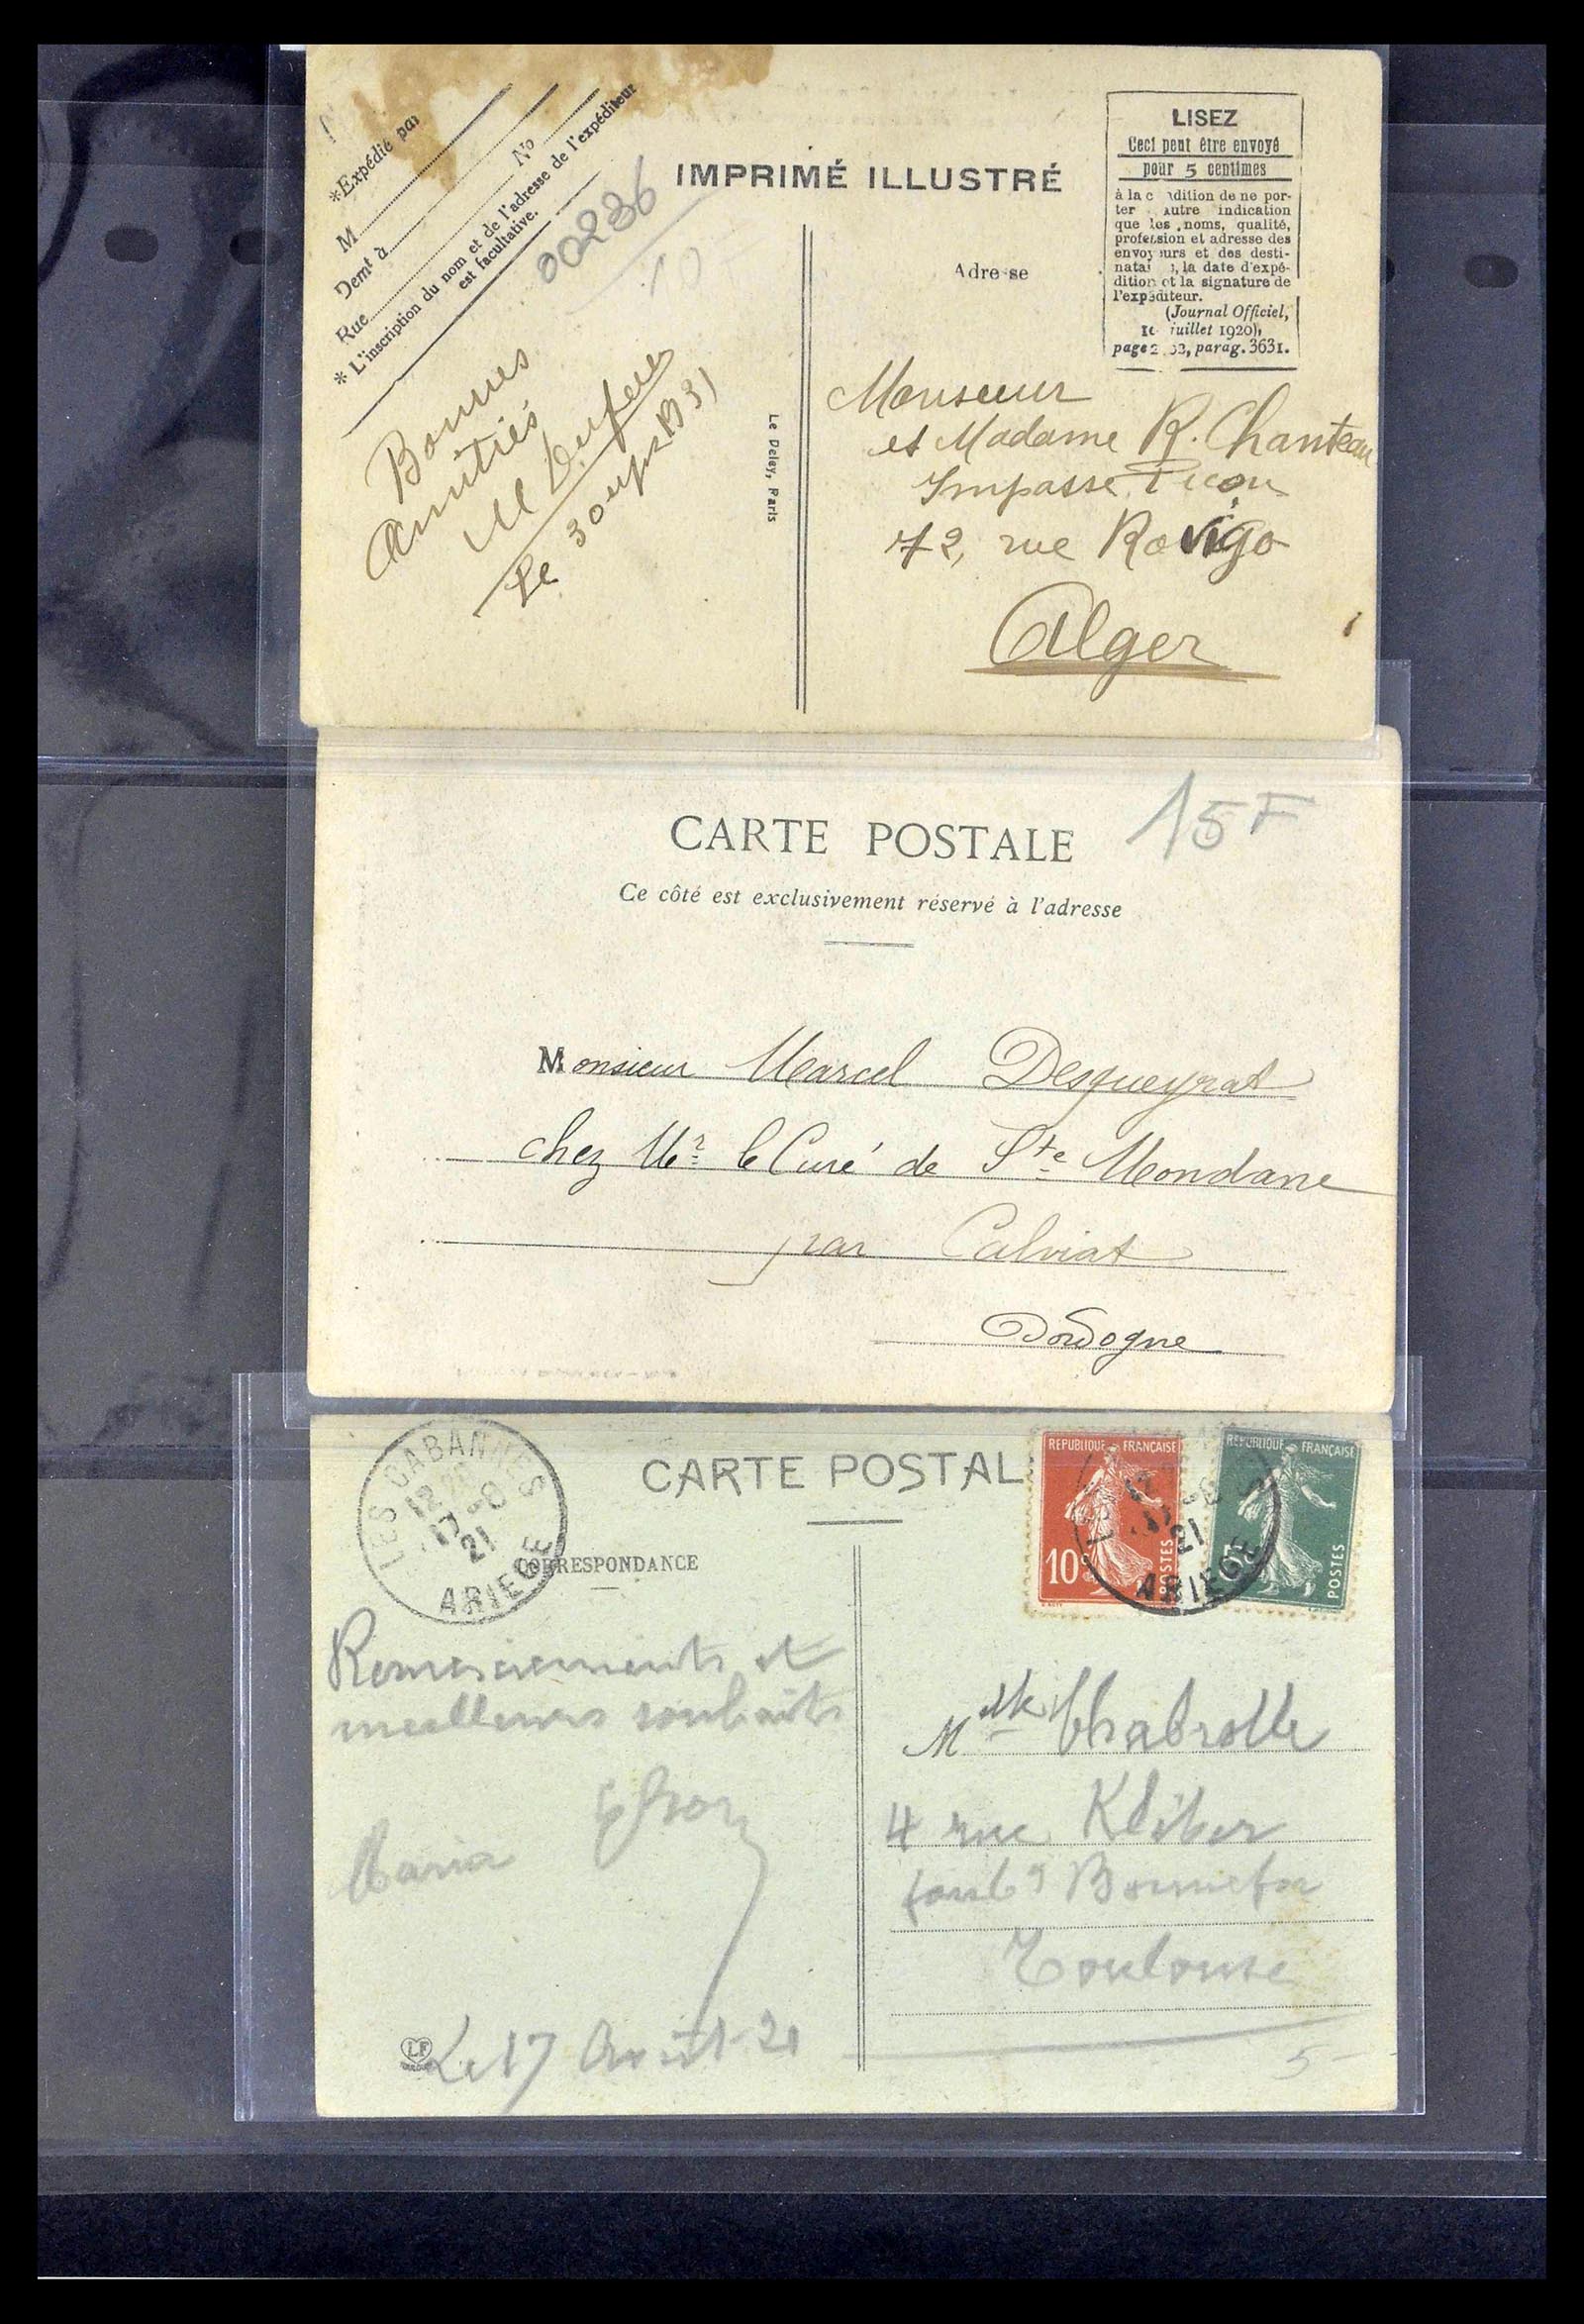 *Expédié par
M
Demt à
No
Rue
* L'inscription du nom et de l'adresse de l'expéditeur
est facultative.
00236
10
IMPRIMÉ ILLUSTRÉ
LISEZ
Ceci peut être envoyé
pour 5 centimes
à la c dition de ne por-
ter autre indication
que les noms, qualité,
profession et adresse des
envoy urs et des desti-
natai , la date d'expé-
dition et la signature de
l'expéditeur.
(Journal Officiel,
juillet 1920),
page 2 , parag. 3631.
Adre se
Bonnes
Amitiés
M
Le 30 1931
Le Deley, Paris
Monsieur
et Madame R. Chanteau
Impasse Picon
72, rue Rovigo
Alger
15 F
CARTE POSTALE
Ce côté est exclusivement réservé à l'adresse
Monsieur Marcel Desqueyrat
chez Mr le Curé de Ste Mondane
par Calviat
Dordogne
LES CABANNES
12
17 -8
21
ARIEGE
CARTE POSTAL
REPUBLIQUE FRANÇAISE
10c
POSTES
REPUBLIQUE FRANÇAISE
5c
POSTES
12
-8
21
ARIEGE
CORRESPONDANCE
Remerciements et
meilleurs souhaits
Maria
Le 17 Août 21
LF
Melle Chabrolle
4 rue Kléber
faubg Bonnefoy
Toulouse
5-